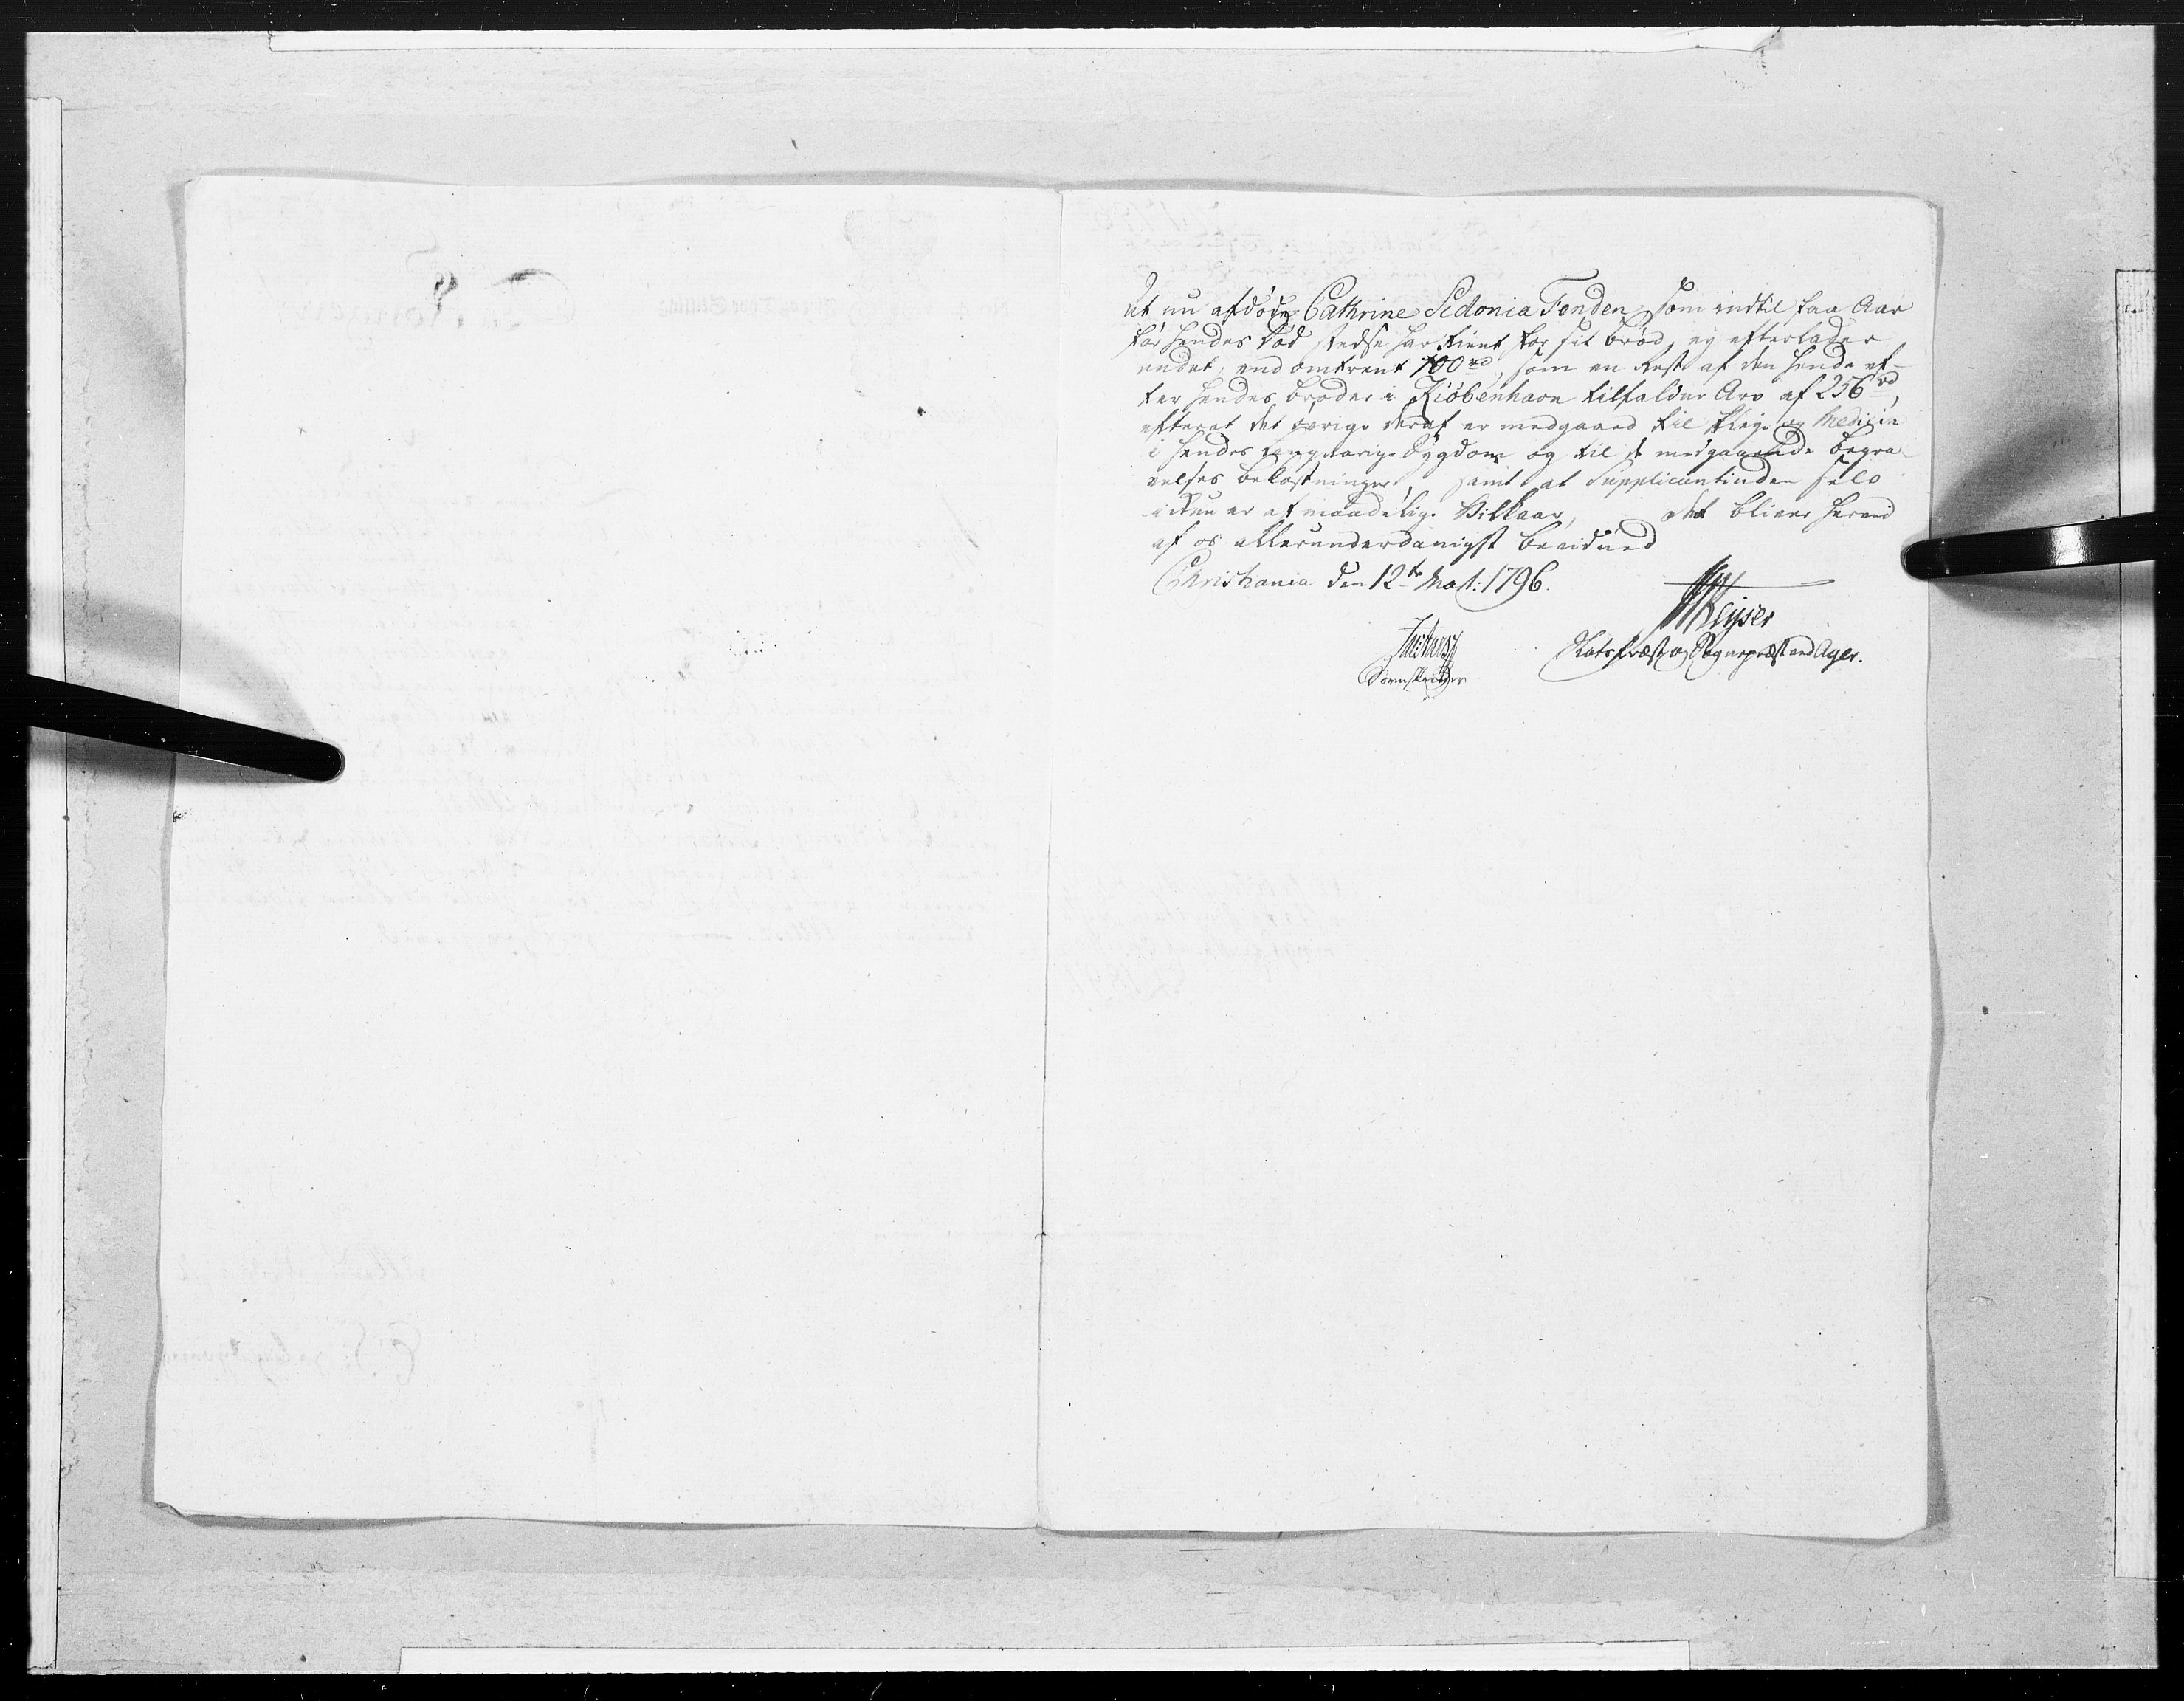 At nu afdøde Cathrine Sidonia Fenden, som indtil faa Aar
før hendes Død stedse har tient for sit brød, ej efterlader
andet, end omtrent 100 rd, som en Rest af den hende ef-
ter hendes broder i Kiöbenhavn tilfaldne Arv af 256 rd,
efterat det øvrige deraf er medgaaed til Pleje og Medicin
i hendes langvarige Sygdom og til de medgaaende begra-
velses bekostninger, samt at Supplicantinden selv
ikkun er af maadelige Vilkaar, Det bliver herved
af os allerunderdanigst bevidned
Christiania den 12te Mart: 1796.
Keyser
Slotspræst og Sognepræst ved Ager.
Sorenskriver